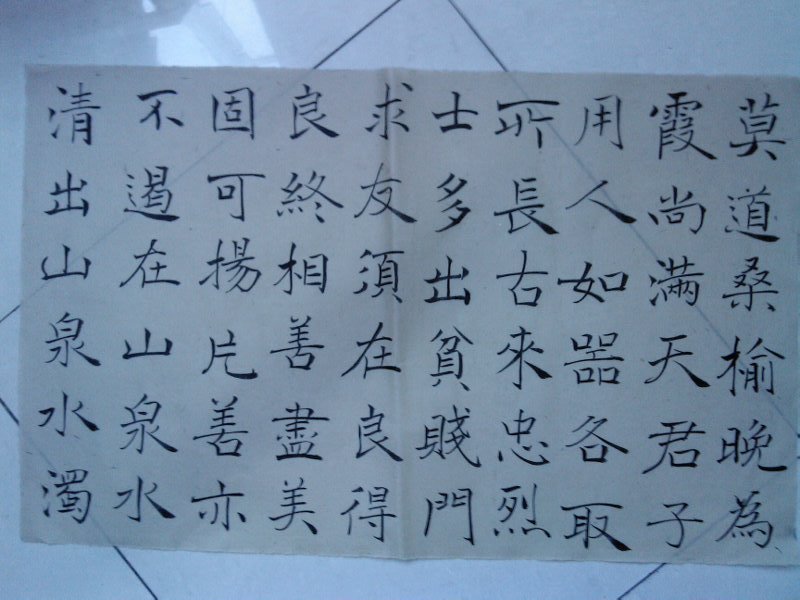 莫道桑榆晚為
霞尚滿天君子
用人如器各取
所長古來忠烈
士多出貧賤門
求友須在良得
良終相善盡美
固可揚片善亦
不遏在山泉水
清出山泉水濁